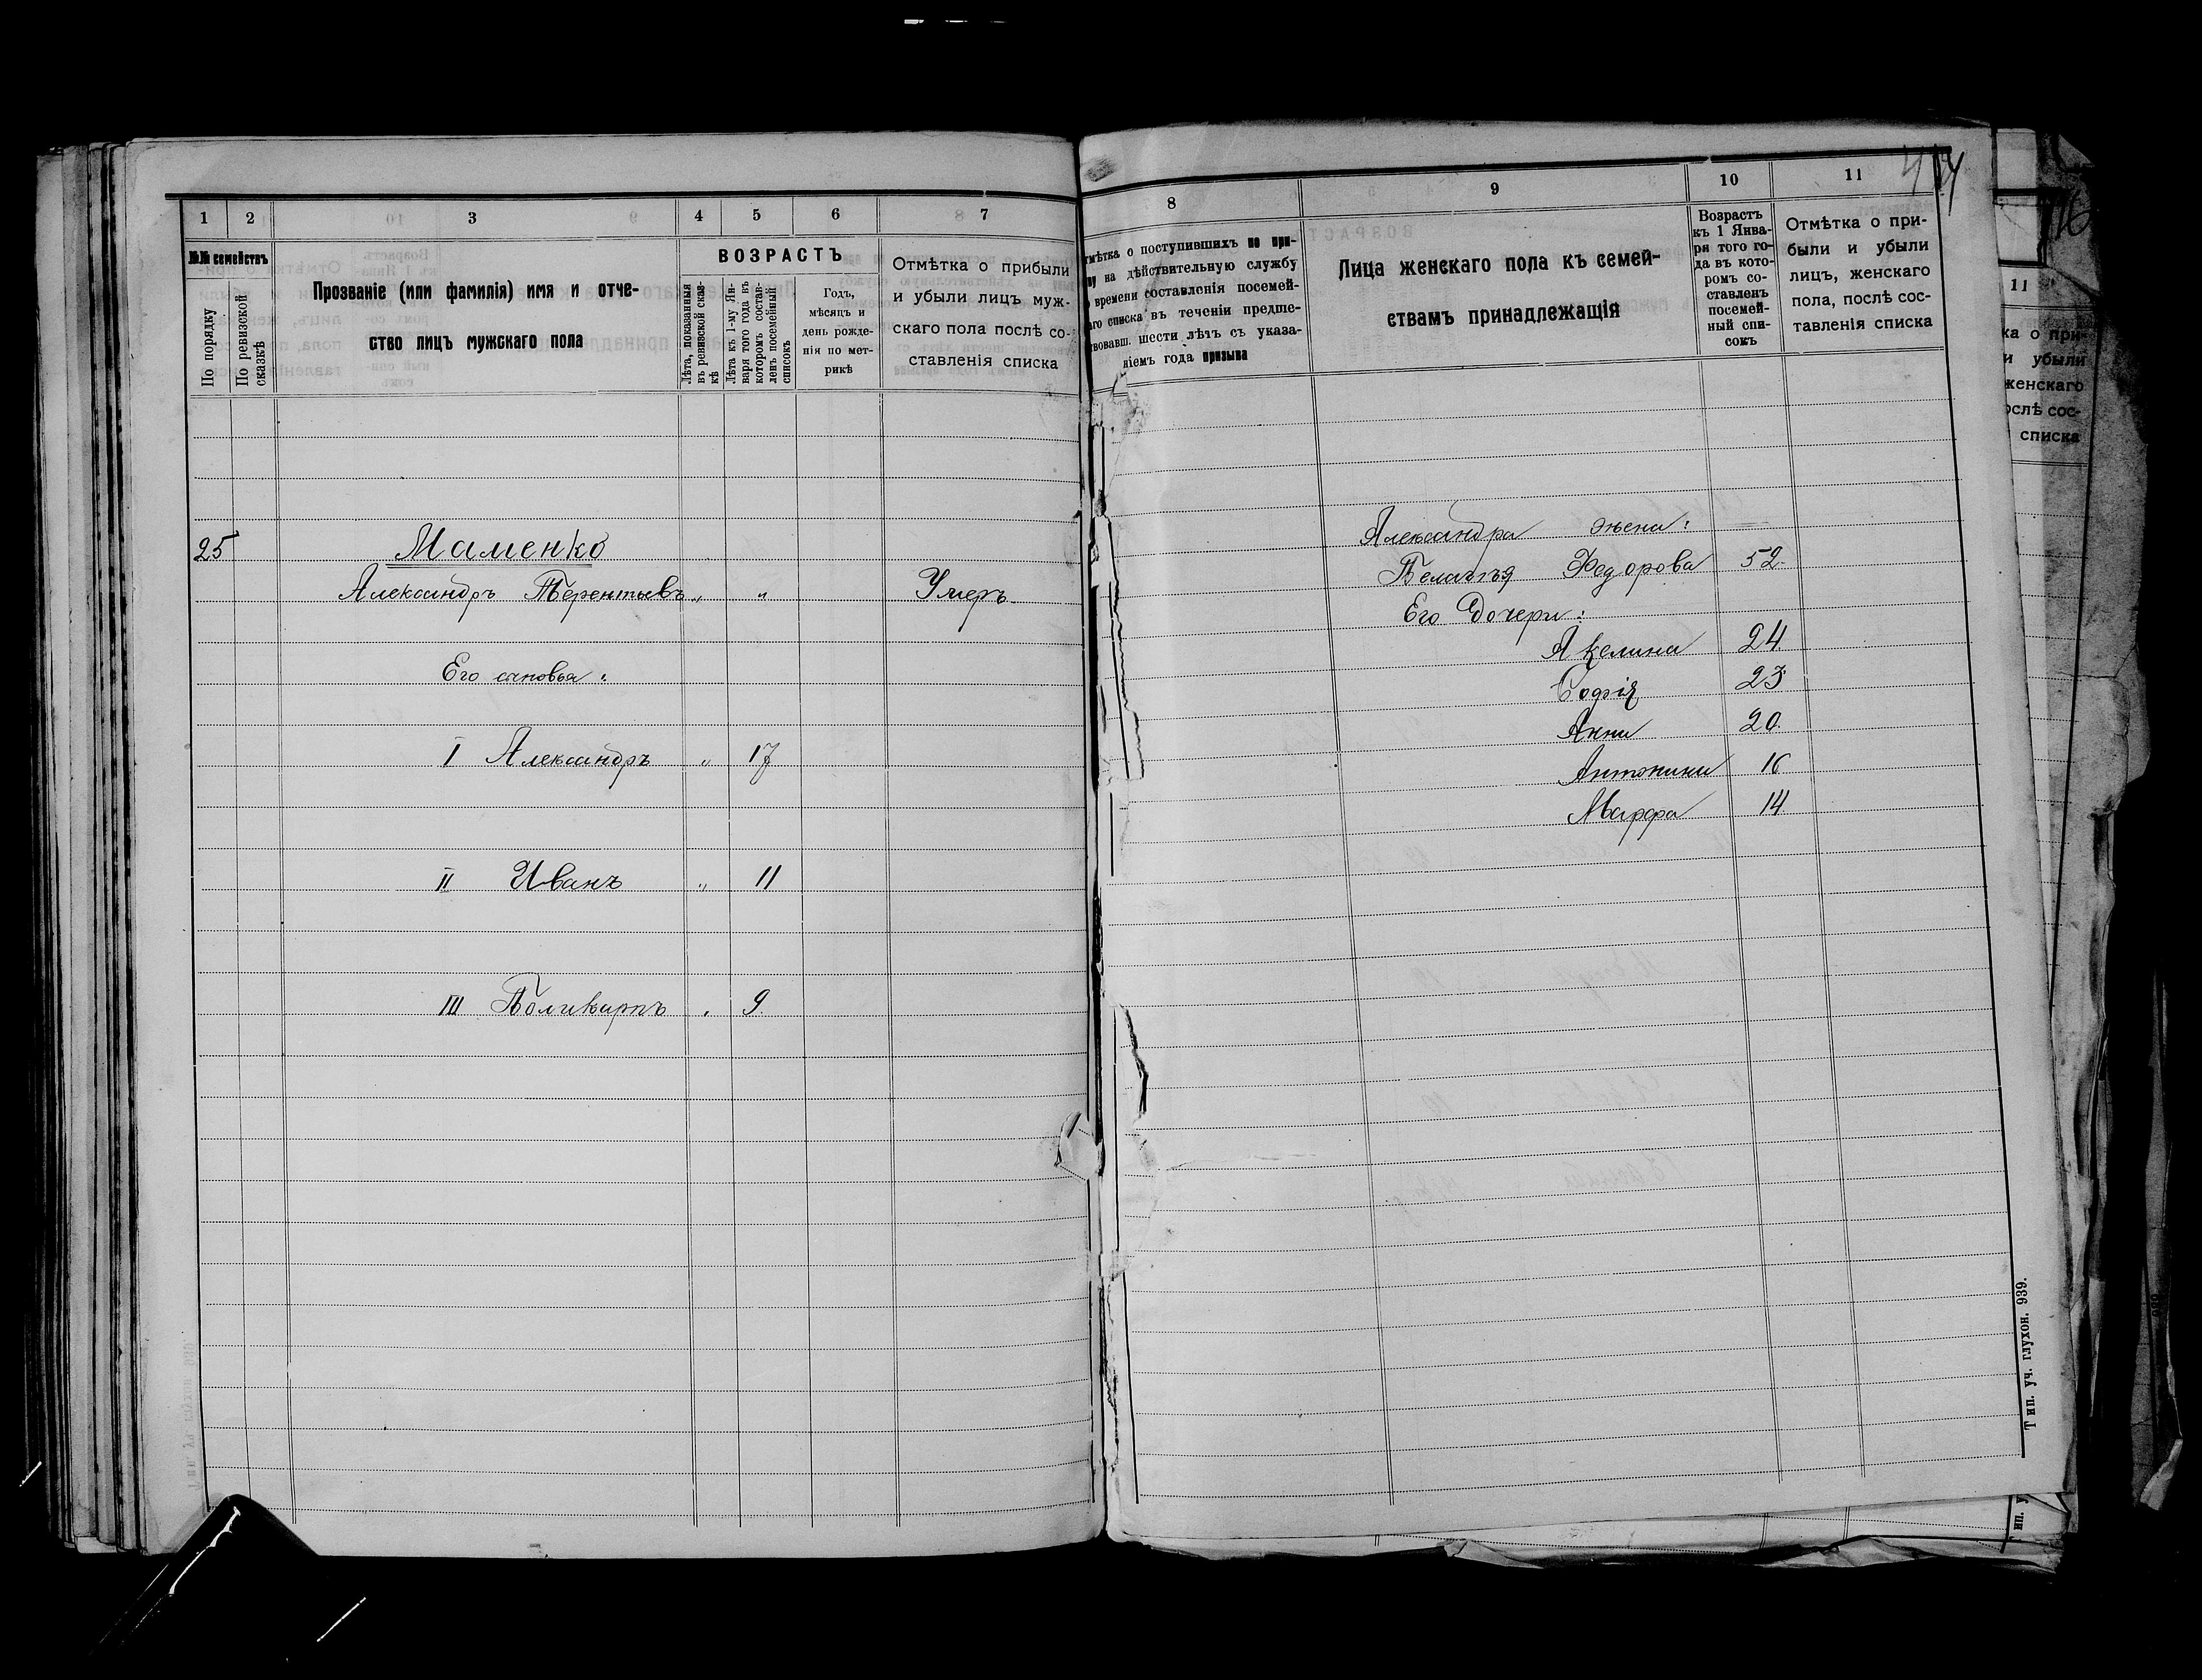 1 2 3 4 5 6 7
№№ семействъ
По порядку
По ревизской сказкѣ
Прозваніе (или фамилія) имя и отче-
ство лицъ мужскаго пола
ВОЗРАСТЪ
Лѣта, показанныя
въ ревизской сказ-
кѣ
Лѣта къ 1-му Ян-
варя того года къ
которомъ состав-
ленъ посемейный
списокъ
Годъ,
мѣсяцъ и
день рожде-
нія по мет-
рикѣ
Отмѣтка о прибыли
и убыли лицъ муж-
скаго пола послѣ со-
ставленія списка
25 Маменко
Александръ Терентьевъ „ „ Умеръ
Его сыновья:
I Александръ „ 17
II Иванъ „ 11
III Поликарпъ „ 9.
8 9 10 11
тмѣтка о поступившихъ по при-
ву на дѣйствительную службу
времени составленія посемей-
аго списка въ теченіи предше-
твовавш. шести лѣтъ съ указа-
ніемъ года призыва
Лица женскаго пола къ семей-
ствамъ принадлежащія
Возрастъ
къ 1 Янва-
ря того го-
да въ кото-
ромъ со-
ставленъ
посемей-
ный спи-
сокъ
Отмѣтка о при-
были и убыли
лицъ, женскаго
пола, послѣ сос-
тавленія списка
Александра жена:
Пелагѣя Федорова 52.
Его Дочери:
Акелина 24.
Софія 23
Анна 20.
Антонина 16
Марфа 14.
Тип. уч. глухон. 939.
11
ка о при-
и убыли
женскаго
ослѣ сос-
списка